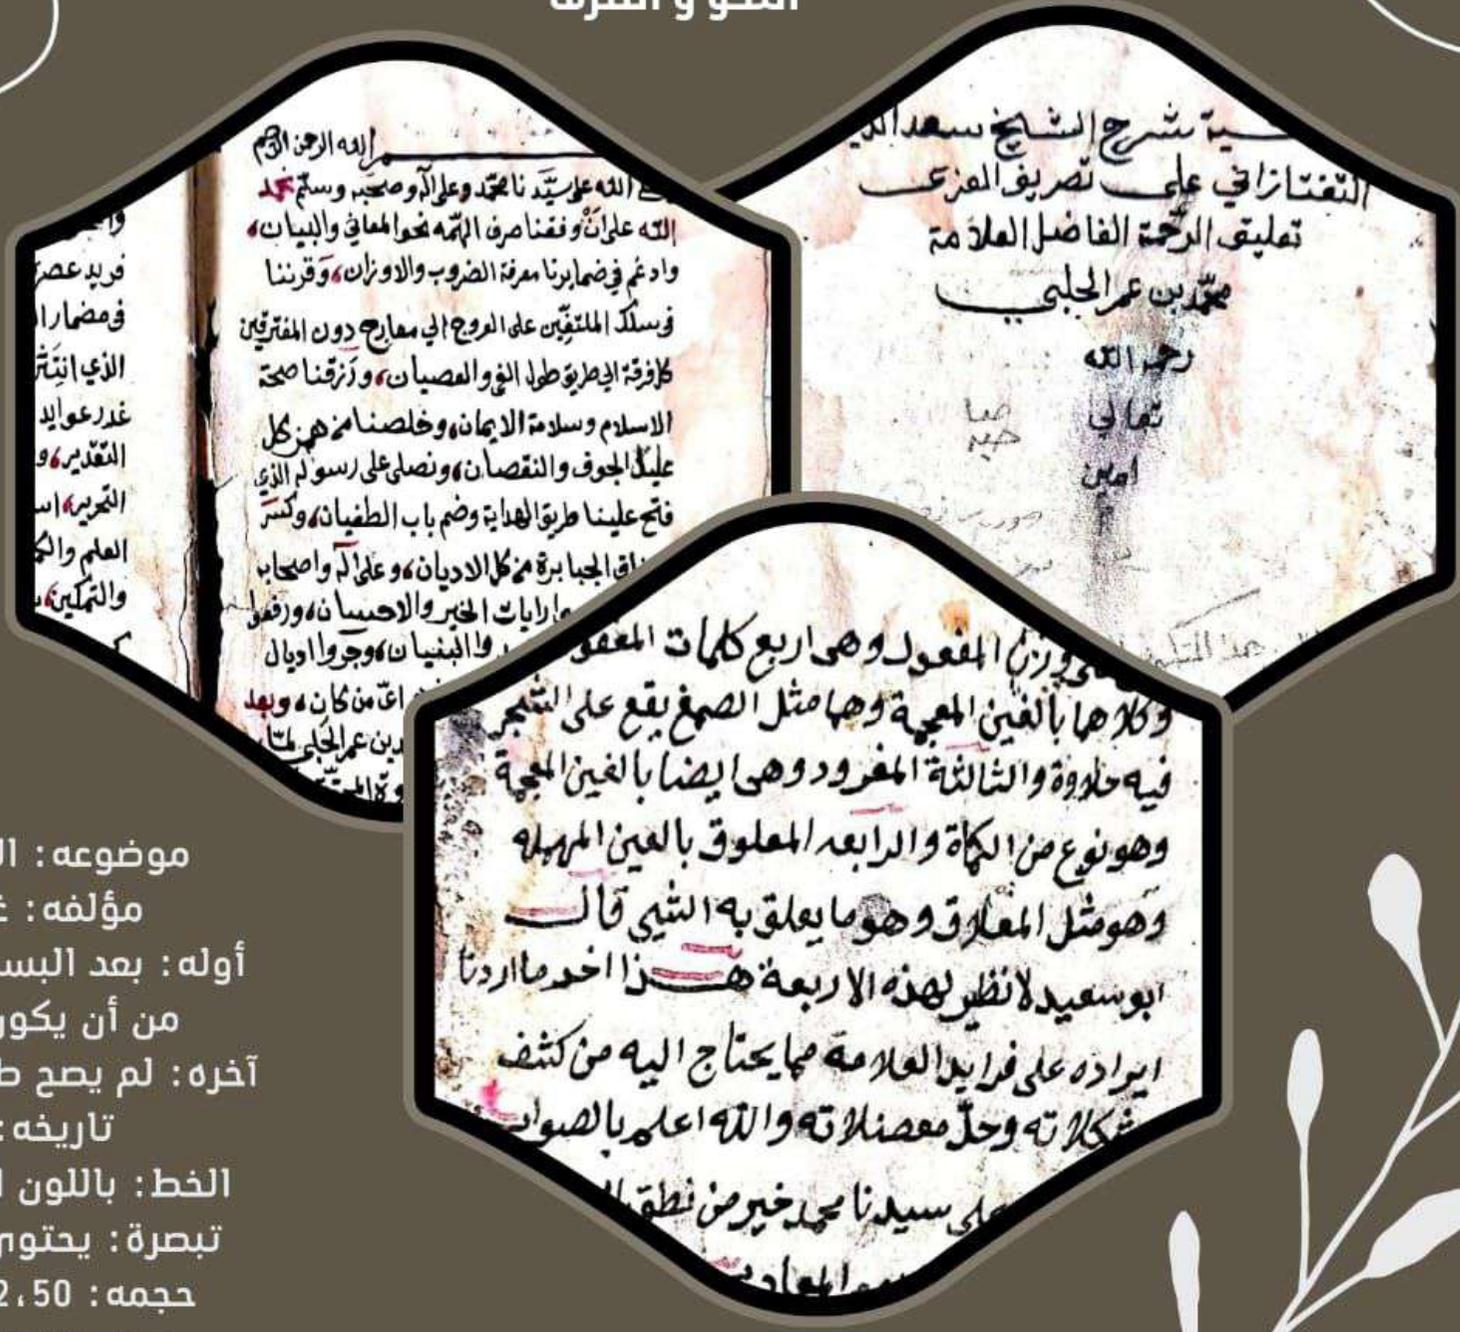 النحو و الصرف
ـسية بشرح الشيخ سعد الديـ
التفتازاني على تصريف العزى
تعليق الرحمة الفاضل العلامة
محمد بن عمر الحلبي
رحمه الله
تعالى
امين
الله الرحمن الرحيم
الله على سيدنا محمد وعلى آله وصحبه وسلم نحمد
الله على ان وفقنا صرف الهمه نحو المعاني والبيان،
وادغم في ضمايرنا معرفة الضروب والاوزان، وقرننا
في سلك الملتفين على العروج الي معارج دون المفترقين
كل فرقة الي طريق طول الغي والعصيان، ورزقنا صحة
الاسلام وسلامة الايمان، وخلصنا من همز كل
عليل الجوف والنقصان، ونصلي على رسوله الذي
فتح علينا طريق الهداية وضم باب الطغيان، وكسر
الجبابرة من كل الاديان، وعلى آله واصحابه
رايات الخير والاحسان، ورفعوا
والبنيان، وجروا اذيال
من كان، وبعد
بن عمر الحلبي لمّا
فريد عصر
في مضمار ا
الذي انتشر
غدر عوايد
التقدير، و
التحرير، اسـ
العلم والحكـ
والتمكين،
وزن المفعول وهى اربع كلمات المغفور
وكلاهما بالغين المعجمة وهما مثل الصمغ يقع على الشجر
فيه حلاوة والثالثة المغرود وهى ايضا بالغين المعجمة
وهو نوع من الكماة والرابعه المعلوق بالعين المهمله
وهو مثل المعلاق وهو ما يعلق به الشيي قال
ابو سعيد لا نظير لهذه الاربعة هذا اخر ما اردنا
ايراده على فرايد العلامة مما يحتاج اليه من كشف
مشكلاته وحلّ معضلاته والله اعلم بالصواب
على سيدنا محمد خير من نطق
موضوعه: ال
مؤلفه: غ
أوله: بعد البسـ
من أن يكون
آخره: لم يصح ط
تاريخه:
الخط: باللون ا
تبصرة: يحتوي
حجمه: 2،50